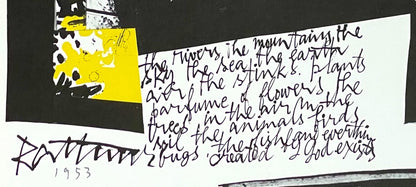 the rivers, the mountains, the
sky the sea, the earth
air the stinks. plants
parfume of flowers the
trees in the air, in the
soil the animals birds
bugs the fish and everything
created god exists
1953